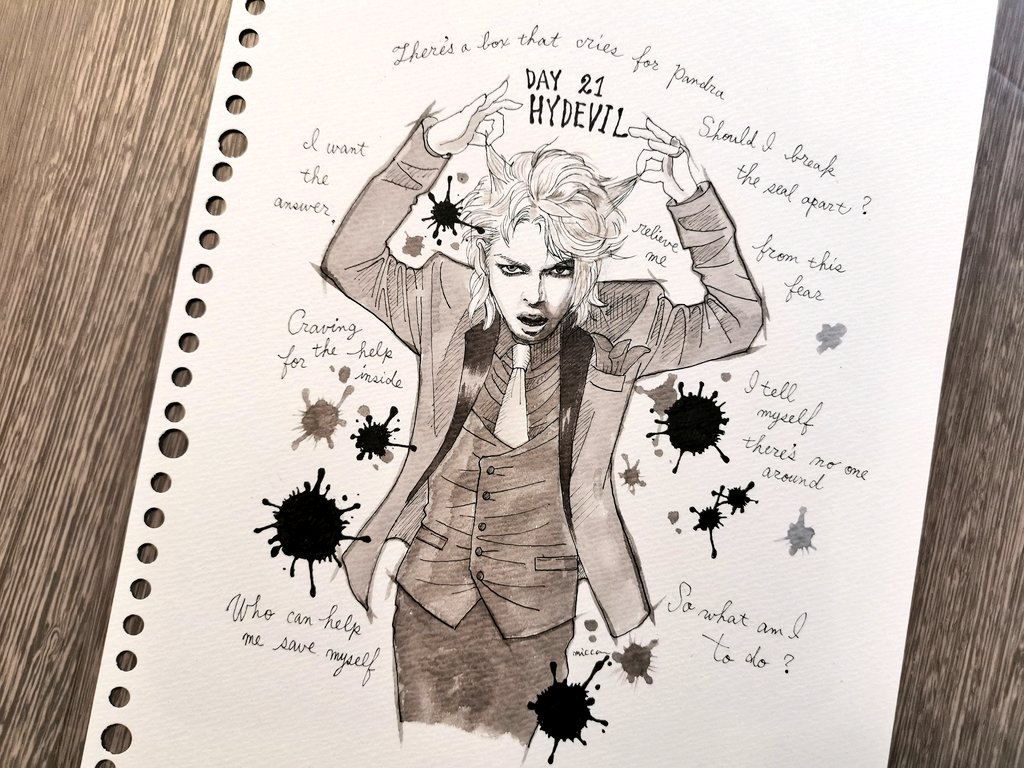 There's a box that cries for Pandra
DAY 21
HYDEVIL
Should I break
the seal apart?
I want
the
answer.
relieve
me
from this
fear
Craving
for the help
inside
I tell
myself
there's no one
around
Who can help
me save myself
So what am I
to do?
micca